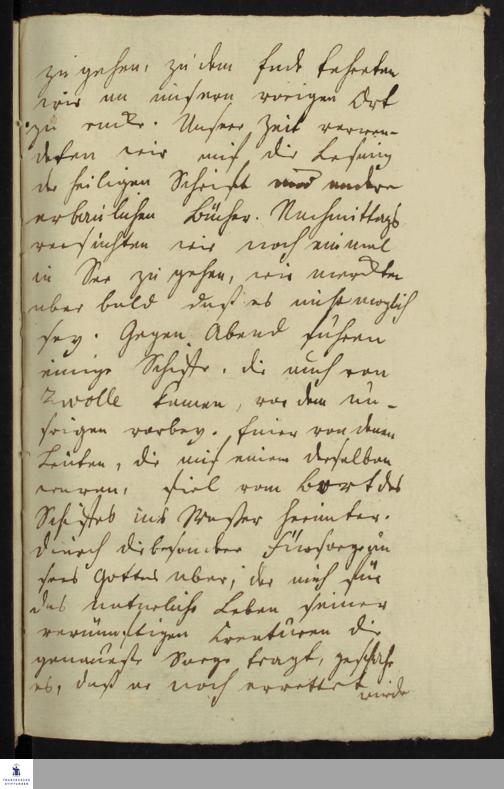 zu gehen, zu dem Ende kehreten
wir an unsern vorigen Ort
zu rück. Unsere Zeit verwen-
deten wir auf die Lesung
der heiligen Schrift und andere
erbaulichen Bücher. Nachmittags
versuchten wir noch einmal
in See zu gehen, wir merckten
aber bald daß es nicht möglich
sey. Gegen Abend fuhren
einige Schiffe, die auch von
Zwolle kamen, vor dem un-
srigen vorbey. Einer von denen
Leuten, die auf einem derselben
waren, fiel vom Bort des
Schiffes ins Waßer herunter.
Durch die besondere Fürsorge un
sers Gottes aber, der auch für
das natürliche Leben seiner
vernünftigen Creaturen die
genaueste Sorge trägt, geschahe
es, daß er noch errettet wurde
FRANCKESCHE
STIFTUNGEN